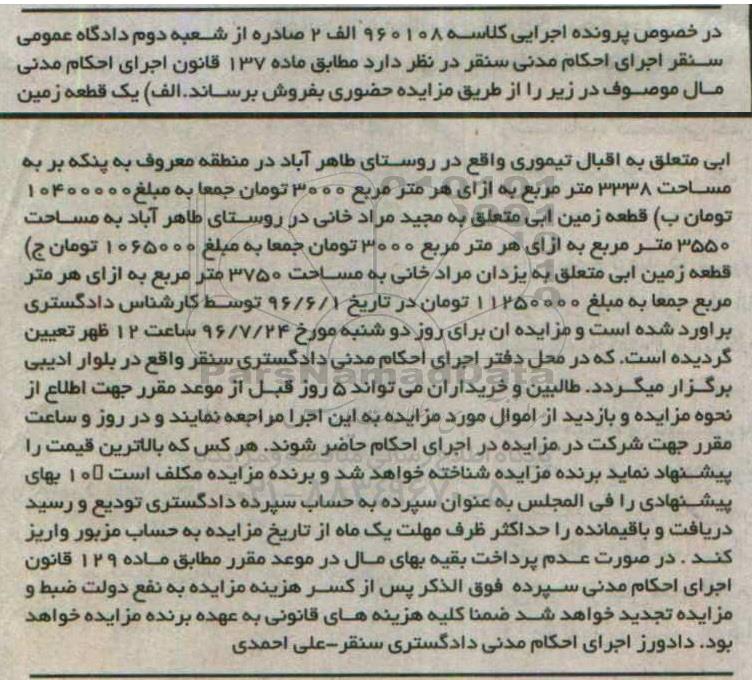 در خصوص پرونده اجرایی کلاسه ۹۶۰۱۰۸ الف ۲ صادره از شعبه دوم دادگاه عمومی
سنقر اجرای احکام مدنی سنقر در نظر دارد مطابق ماده ۱۳۷ قانون اجرای احکام مدنی
مال موصوف در زیر را از طریق مزایده حضوری بفروش برساند.الف) یک قطعه زمین
ابی متعلق به اقبال تیموری واقع در روستای طاهر آباد در منطقه معروف به پنکه بر به
مساحت ۳۳۳۸ متر مربع به ازای هر متر مربع ۳۰۰۰ تومان جمعا به مبلغ ۱۰۴۰۰۰۰۰
تومان ب) قطعه زمین ابی متعلق به مجید مراد خانی در روستای طاهر آباد به مساحت
۳۵۵۰ متر مربع به ازای هر متر مربع ۳۰۰۰ تومان جمعا به مبلغ ۱۰۶۵۰۰۰ تومان ج)
قطعه زمین ابی متعلق به یزدان مراد خانی به مساحت ۳۷۵۰ متر مربع به ازای هر متر
مربع جمعا به مبلغ ۱۱۲۵۰۰۰۰ تومان در تاریخ ۹۶/۶/۱ توسط کارشناس دادگستری
براورد شده است و مزایده ان برای روز دو شنبه مورخ ۹۶/۷/۲۴ ساعت ۱۲ ظهر تعیین
گردیده است. که در محل دفتر اجرای احکام مدنی دادگستری سنقر واقع در بلوار ادیبی
برگزار میگردد. طالبین و خریداران می تواند ۵ روز قبل از موعد مقرر جهت اطلاع از
نحوه مزایده و بازدید از اموال مورد مزایده به این اجرا مراجعه نمایند و در روز و ساعت
مقرر جهت شرکت در مزایده در اجرای احکام حاضر شوند. هر کس که بالاترین قیمت را
پیشنهاد نماید برنده مزایده شناخته خواهد شد و برنده مزایده مکلف است ۱۰ بهای
پیشنهادی را فی المجلس به عنوان سپرده به حساب سپرده دادگستری تودیع و رسید
دریافت و باقیمانده را حداکثر ظرف مهلت یک ماه از تاریخ مزایده به حساب مزبور واریز
کند . در صورت عدم پرداخت بقیه بهای مال در موعد مقرر مطابق ماده ۱۲۹ قانون
اجرای احکام مدنی سپرده فوق الذکر پس از کسر هزینه مزایده به نفع دولت ضبط و
مزایده تجدید خواهد شد ضمنا کلیه هزینه های قانونی به عهده برنده مزایده خواهد
بود. دادورز اجرای احکام مدنی دادگستری سنقر-علی احمدی
ParsNamadData